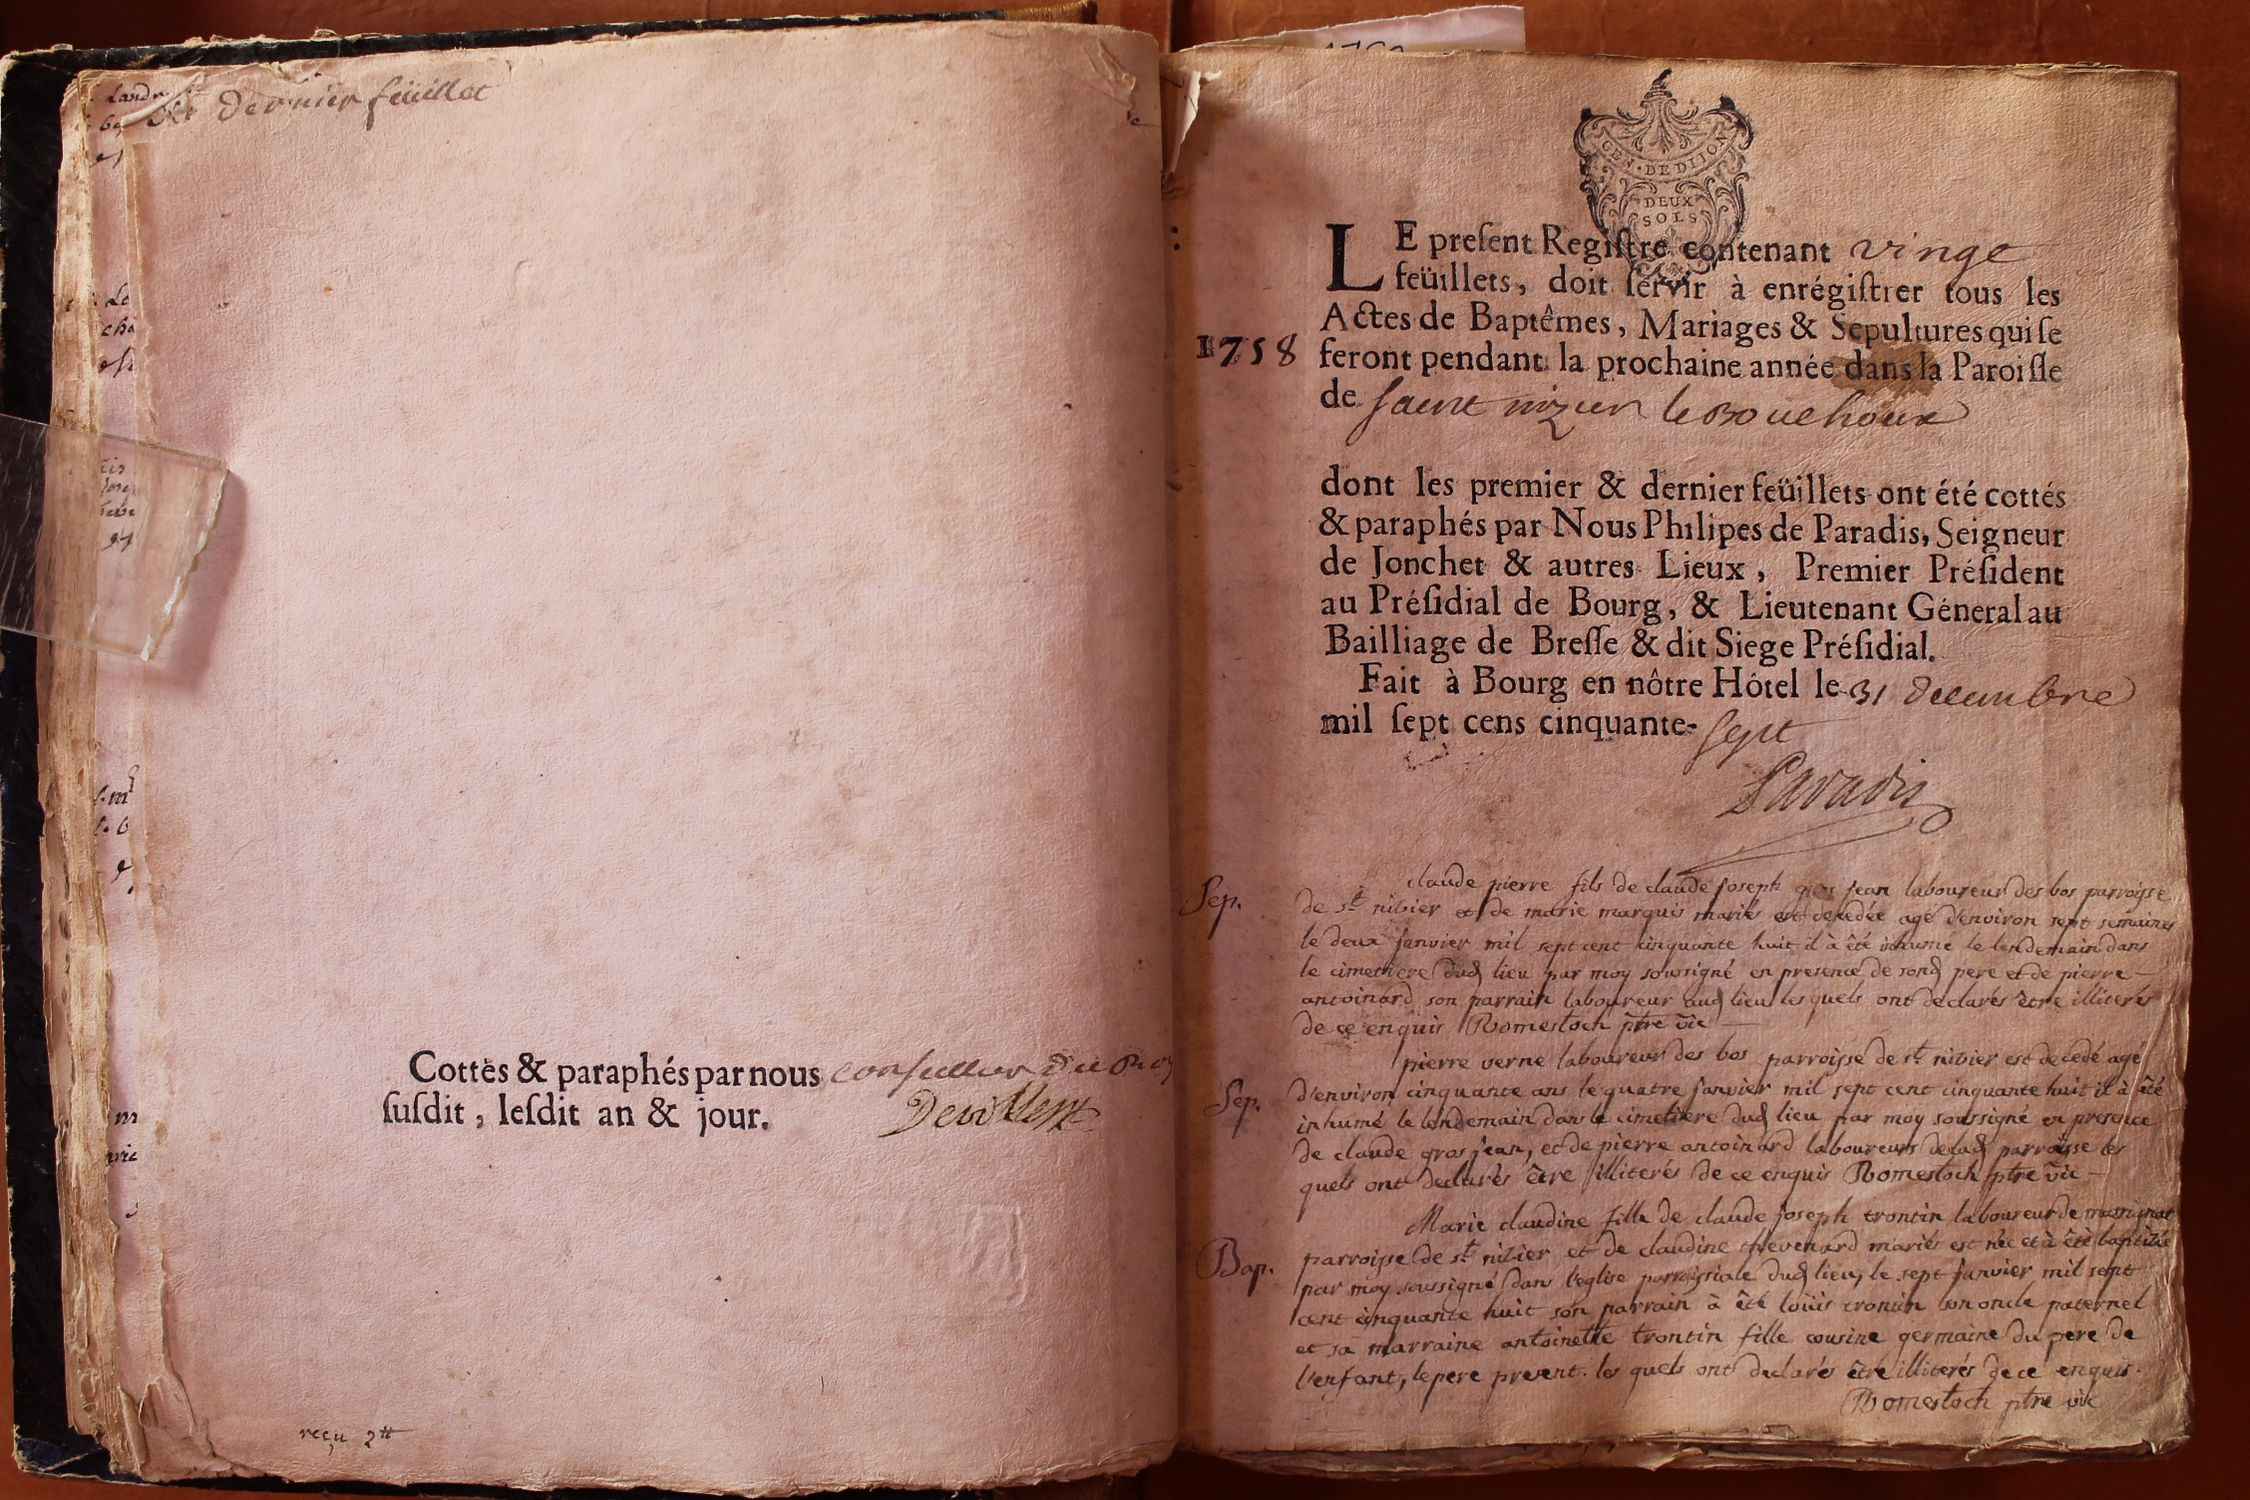 dernier feüillet
Cottés & paraphés par nous conseiller du Roy
susdit, lesdit an & jour.
reçu 2tt
GEN · DE DIJON
DEUX
SOLS
LE present Registre contenant vingt
feüillets, doit servir à enrégistrer tous les
Actes de Baptêmes, Mariages & Sepultures qui se
1758
feront pendant la prochaine année dans la Paroisse
de saint nizier le Bouchoux
dont les premier & dernier feüillets ont été cottés
& paraphés par Nous Philipes de Paradis, Seigneur
de Jonchet & autres Lieux, Premier Président
au Présidial de Bourg, & Lieutenant Géneral au
Bailliage de Bresse & dit Siege Présidial.
Fait à Bourg en nôtre Hôtel le 31 decembre
mil sept cens cinquante-sept
Paradis
claude pierre fils de claude joseph gros jean laboureur des bos parroisse
Sep.
de st nizier et de marie marquis mariés est decedée agé d'environ sept semaines
le deux janvier mil sept cent cinquante huit il à êté inhumé le lendemain dans
le cimetiere dud lieu par moy soussigné en presence de sond pere et de pierre
antoinard son parrain laboureur aud lieu les quels ont declarés être illiterés
de ce enquis Romestoch ptre vic
pierre verne laboureur des bos parroisse de st nizier est decedé agé
Sep.
d'environ cinquante ans le quatre janvier mil sept cent cinquante huit il à êté
inhumé le lendemain dans le cimetiere dud lieu par moy soussigné en presence
de claude gros jean, et de pierre antoinard laboureurs de lad parroisse les
quels ont declarés être illiterés de ce enquis Romestoch ptre vic
Marie claudine fille de claude joseph trontin laboureur de marignat
Bap.
parroisse de st nizier et de claudine thevenard mariés est née et à êté baptisée
par moy soussigné dans l'eglise parroissiale dud lieu, le sept janvier mil sept
cent cinquante huit son parrain à êté loüis trontin son oncle paternel
et sa marraine antoinette trontin fille cousine germaine du pere de
l'enfant, le pere present. les quels ont declarés être illiterés de ce enquis.
Romestoch ptre vic